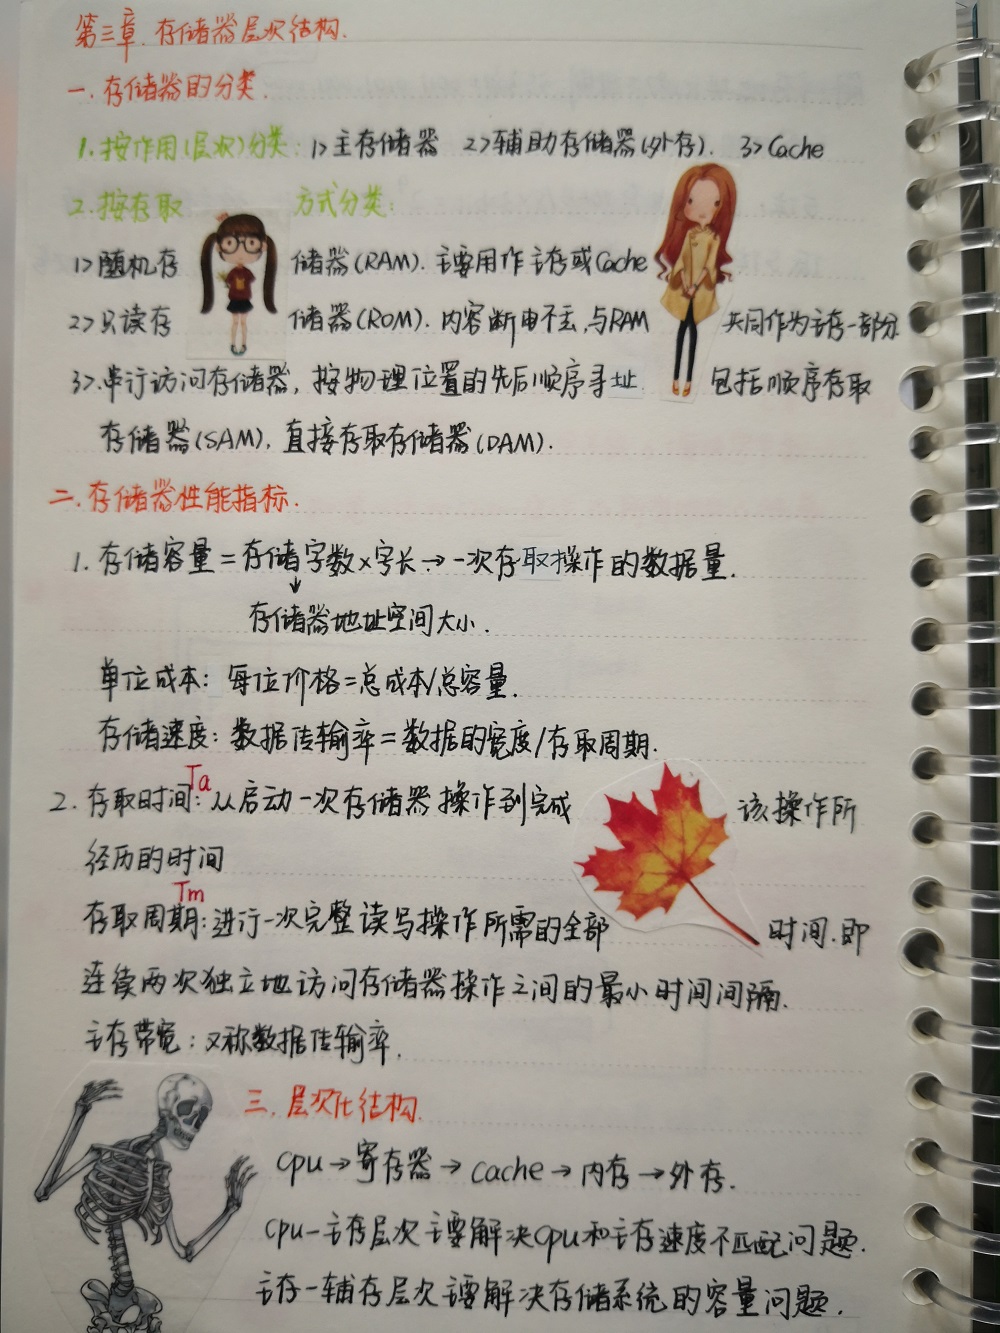 第三章.存储器层次结构.
一.存储器的分类.
1.按作用(层次)分类: 1>主存储器 2>辅助存储器(外存). 3>Cache
2.按存取方式分类:
1>随机存储器(RAM). 主要用作主存或Cache
2>只读存储器(ROM). 内容断电不丢,与RAM共同作为主存一部分
3>.串行访问存储器, 按物理位置的先后顺序寻址 包括顺序存取
存储器(SAM), 直接存取存储器(DAM).
二.存储器性能指标.
1.存储容量=存储字数×字长→一次存取操作的数据量.
↓
存储器地址空间大小.
单位成本: 每位价格=总成本/总容量.
存储速度: 数据传输率=数据的宽度/存取周期.
Ta
2.存取时间:从启动一次存储器操作到完成该操作所
经历的时间
Tm
存取周期:进行一次完整读写操作所需的全部时间.即
连续两次独立地访问存储器操作之间的最小时间间隔.
主存带宽: 又称数据传输率.
三.层次化结构.
cpu→寄存器→cache→内存→外存.
cpu-主存层次主要解决cpu和主存速度不匹配问题.
主存-辅存层次主要解决存储系统的容量问题.